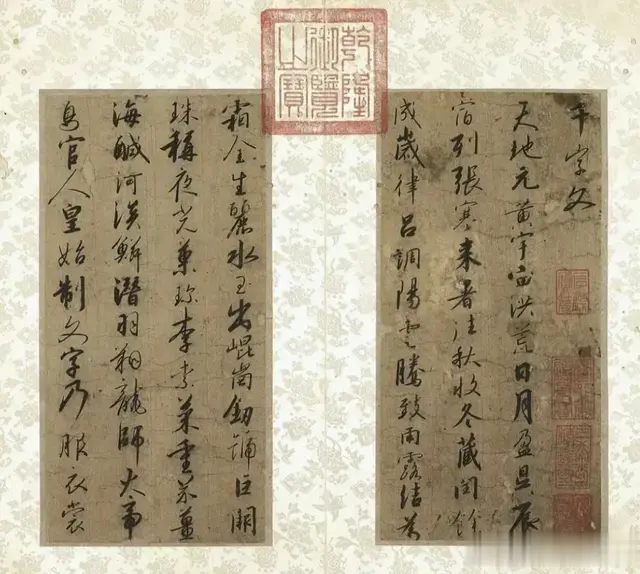 乾隆御覽之寶
千字文
天地元黄宇宙洪荒日月盈昃辰
宿列張寒来暑往秋收冬藏閏餘
成歲律呂調陽雲騰致雨露結為
霜金生麗水玉出崐崗釼號巨闕
珠稱夜光菓珍李柰菜重芥薑
海醎河淡鱗潛羽翔龍師火帝
鳥官人皇始制文字乃服衣裳